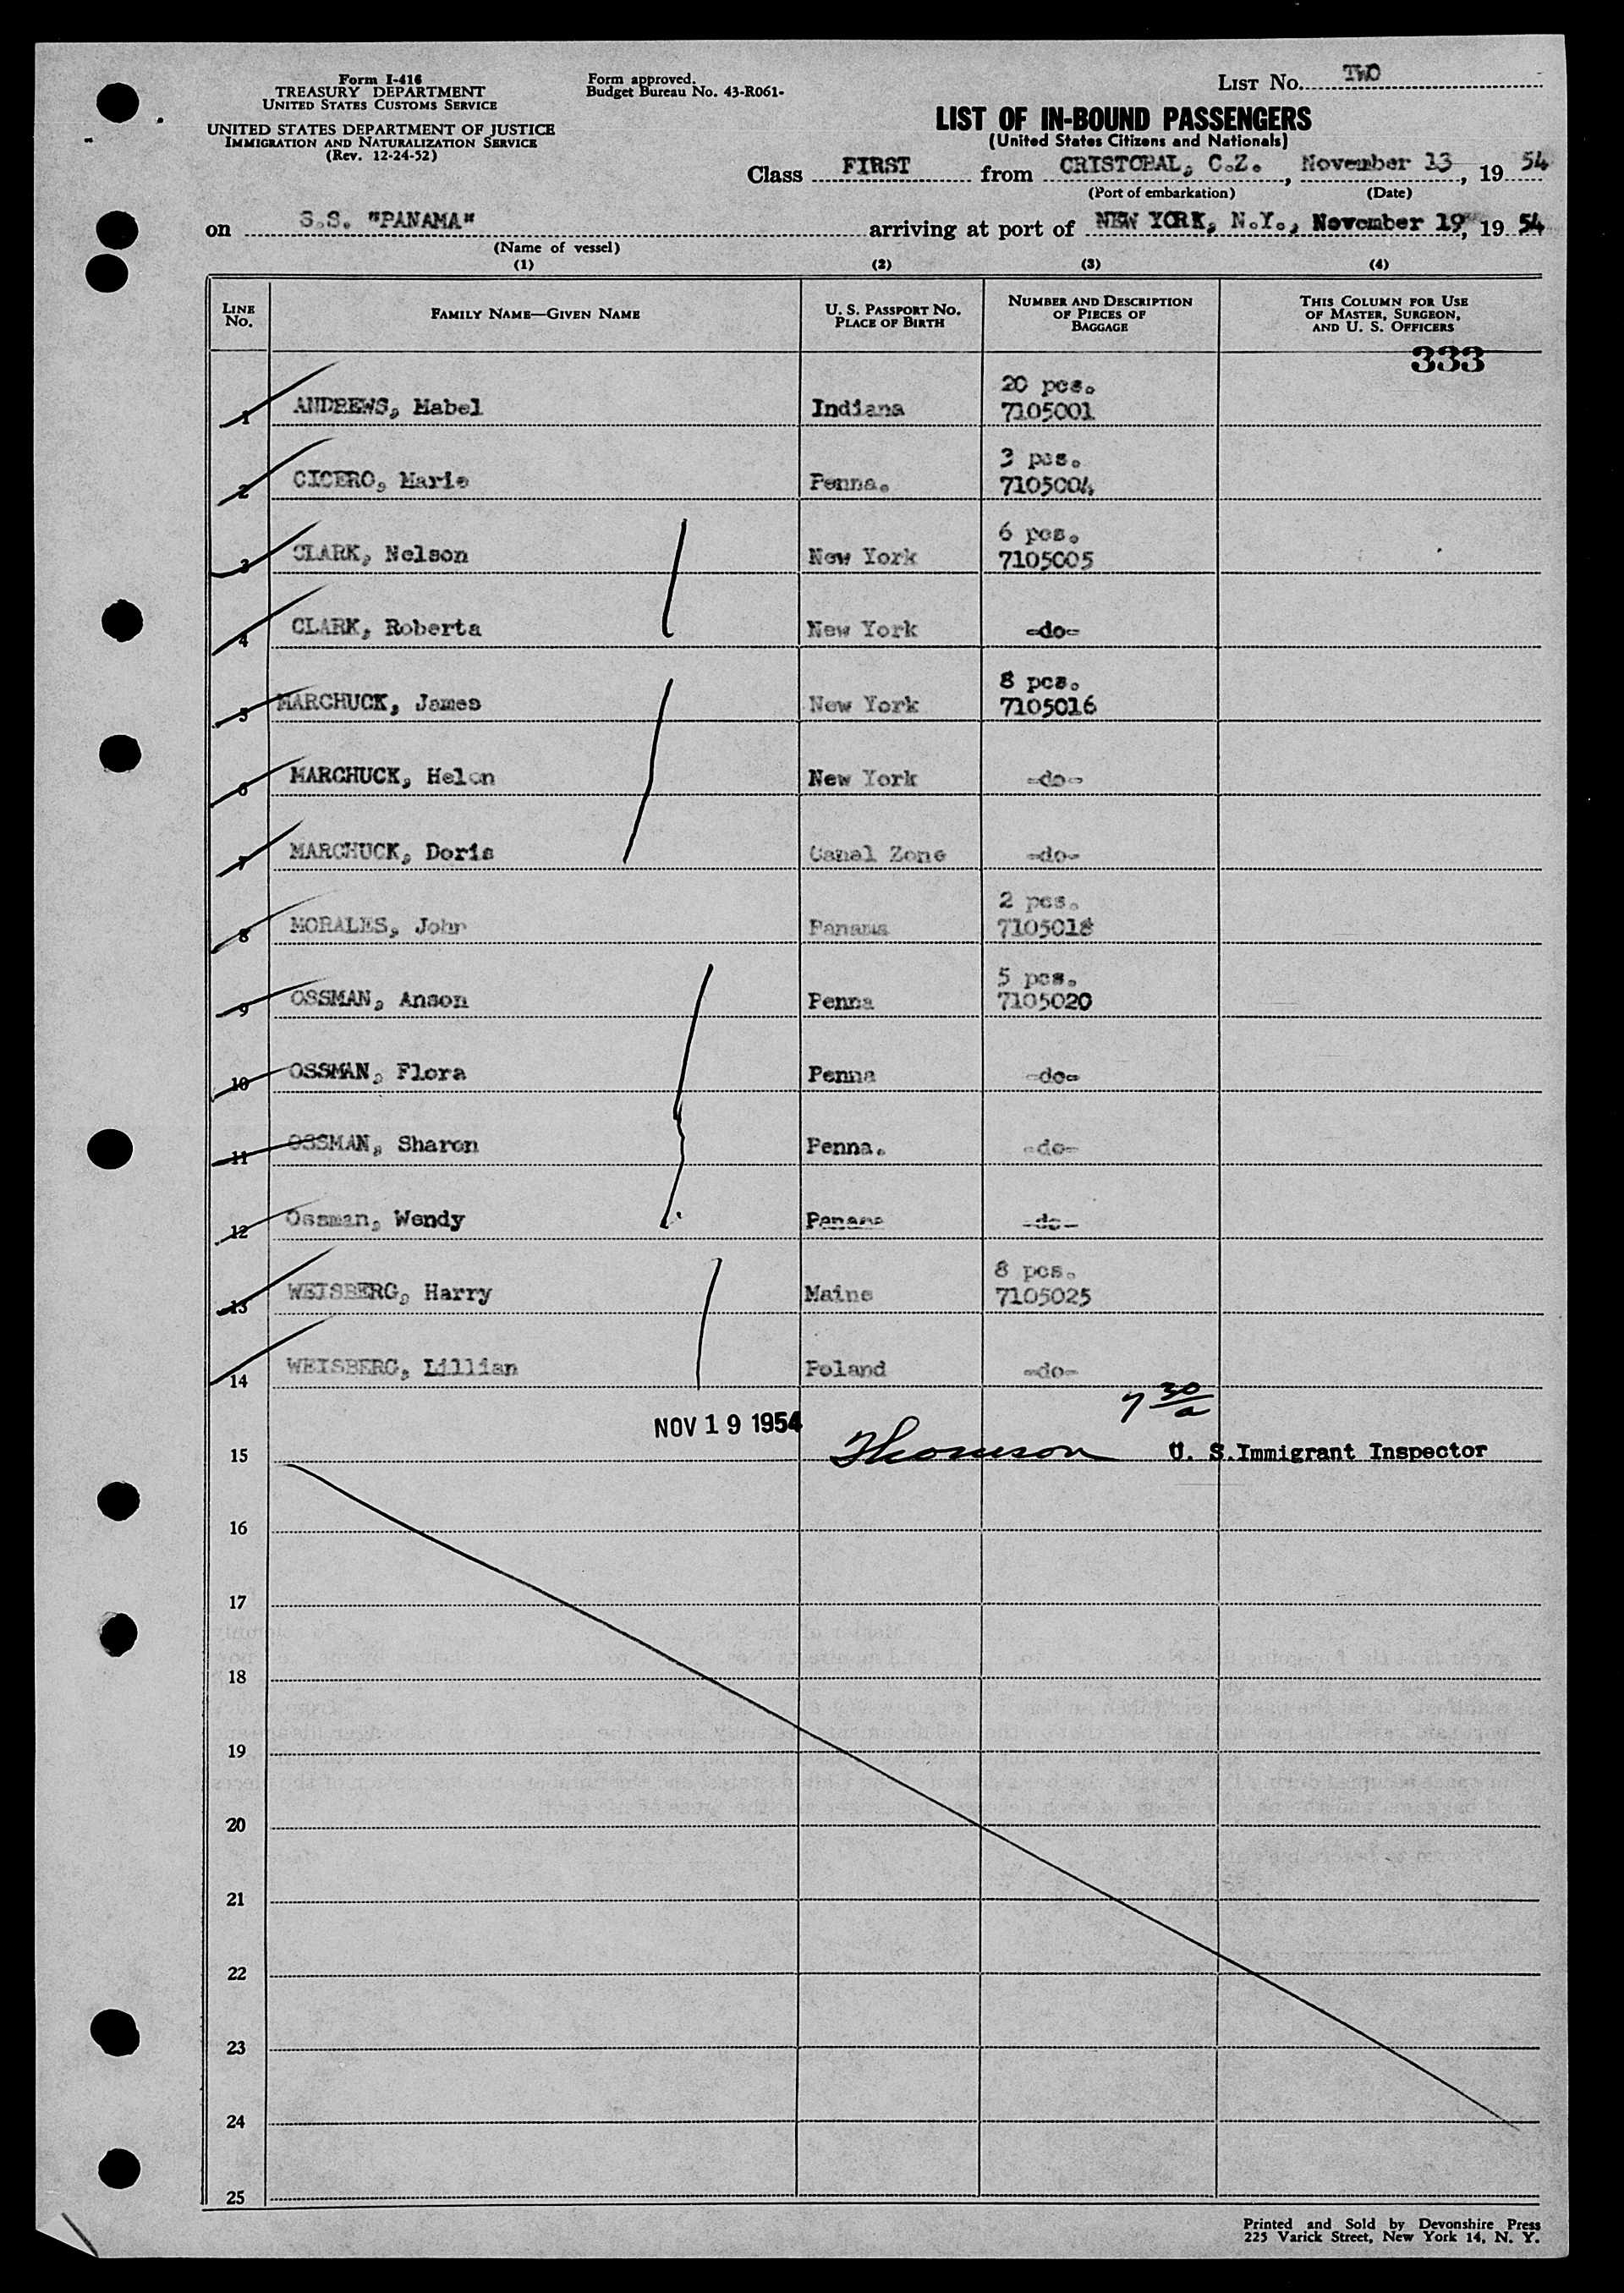 Form I-416
TREASURY DEPARTMENT
UNITED STATES CUSTOMS SERVICE
UNITED STATES DEPARTMENT OF JUSTICE
IMMIGRATION AND NATURALIZATION SERVICE
(Rev. 12-24-52)
Form approved.
Budget Bureau No. 43-R061-
LIST No. TWO
LIST OF IN-BOUND PASSENGERS
(United States Citizens and Nationals)
Class FIRST from CRISTOBAL, C.Z., November 13, 19 54
(Port of embarkation) (Date)
on S.S. "PANAMA" arriving at port of NEW YORK, N.Y., November 19, 19 54
(Name of vessel)
(1) (2) (3) (4)
LINE No. FAMILY NAME—GIVEN NAME U. S. PASSPORT NO. PLACE OF BIRTH NUMBER AND DESCRIPTION OF PIECES OF BAGGAGE THIS COLUMN FOR USE OF MASTER, SURGEON, AND U. S. OFFICERS
333
20 pcs.
1 ANDREWS, Mabel Indiana 7105001
3 pcs.
2 CICERO, Marie Penna. 7105004
6 pcs.
3 CLARK, Nelson New York 7105005
4 CLARK, Roberta New York -do-
8 pcs.
5 MARCHUCK, James New York 7105016
6 MARCHUCK, Helen New York -do-
7 MARCHUCK, Doris Canal Zone -do-
2 pcs.
8 MORALES, John Panama 7105018
5 pcs.
9 OSSMAN, Anson Penna 7105020
10 OSSMAN, Flora Penna -do-
11 OSSMAN, Sharon Penna. -do-
12 Ossman, Wendy Panama -do-
8 pcs.
13 WEISBERG, Harry Maine 7105025
14 WEISBERG, Lillian Poland -do-
7 30/a
NOV 19 1954
15 Thomson U. S. Immigrant Inspector
16
17
18
19
20
21
22
23
24
25
Printed and Sold by Devonshire Press
225 Varick Street, New York 14, N. Y.